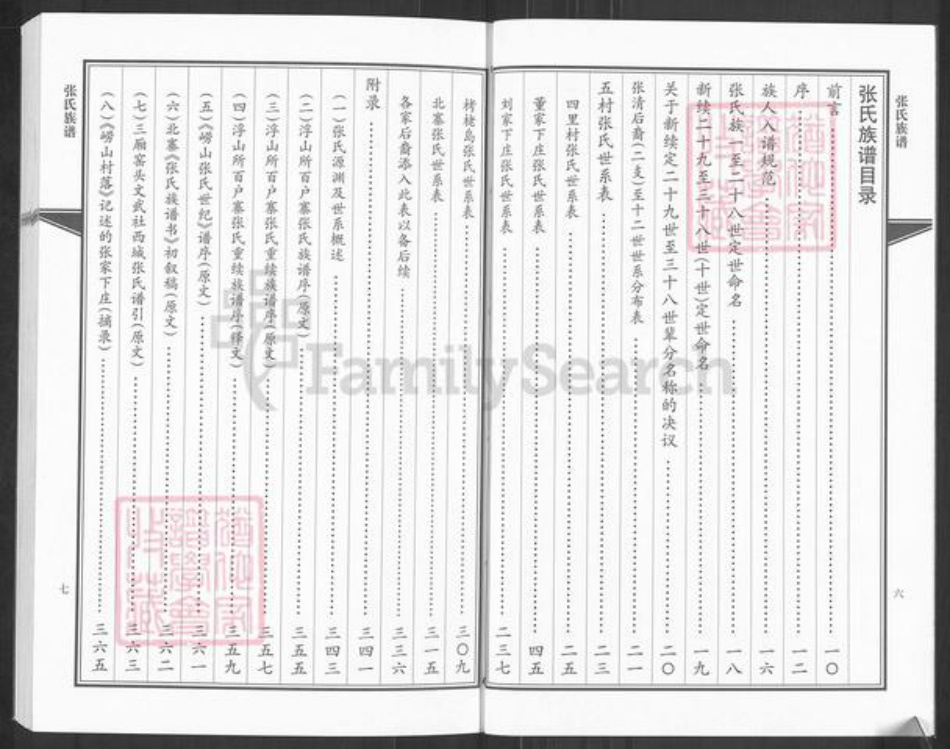 张氏族谱
张氏族谱目录
前言 一〇
序 一二
族人入谱规范 一六
张氏族一至二十八世定世命名 一八
新续二十九至三十八世(十世)定世命名 一九
关于新续定二十九世至三十八世辈分名称的决议 二〇
张清后裔(二支)至十二世世系分布表 二一
五村张氏世系表 二三
四里村张氏世系表 二五
董家下庄张氏世系表 四五
刘家下庄张氏世系表 二三七
六
栲栳岛张氏世系表 三〇九
北寨张氏世系表 三一五
各家后裔添入此表以备后续 三三六
附录 三四一
(一)张氏源渊及世系概述 三四三
(二)浮山所百户寨张氏族谱序(原文) 三五五
(三)浮山所百户寨张氏重续族谱序(原文) 三五七
(四)浮山所百户寨张氏重续族谱序(释文) 三五九
(五)《崂山张氏世纪》谱序(原文) 三六一
(六)北寨《张氏族谱书》初叙稿(原文) 三六二
(七)三厫窑头文武社西城张氏谱引(原文) 三六三
(八)《崂山村落》记述的张家下庄(摘录) 三六五
张氏族谱
七
FamilySearch